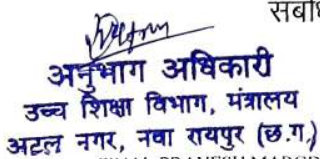 संबोधि
अनुभाग अधिकारी
उच्च शिक्षा विभाग, मंत्रालय
अटल नगर, नवा रायपुर (छ.ग.)